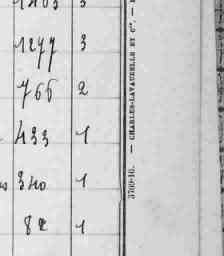 1277 3
766 2
433 1
340 1
82 1
3700-16. — CHARLES-LAVAUZELLE ET Cie. —